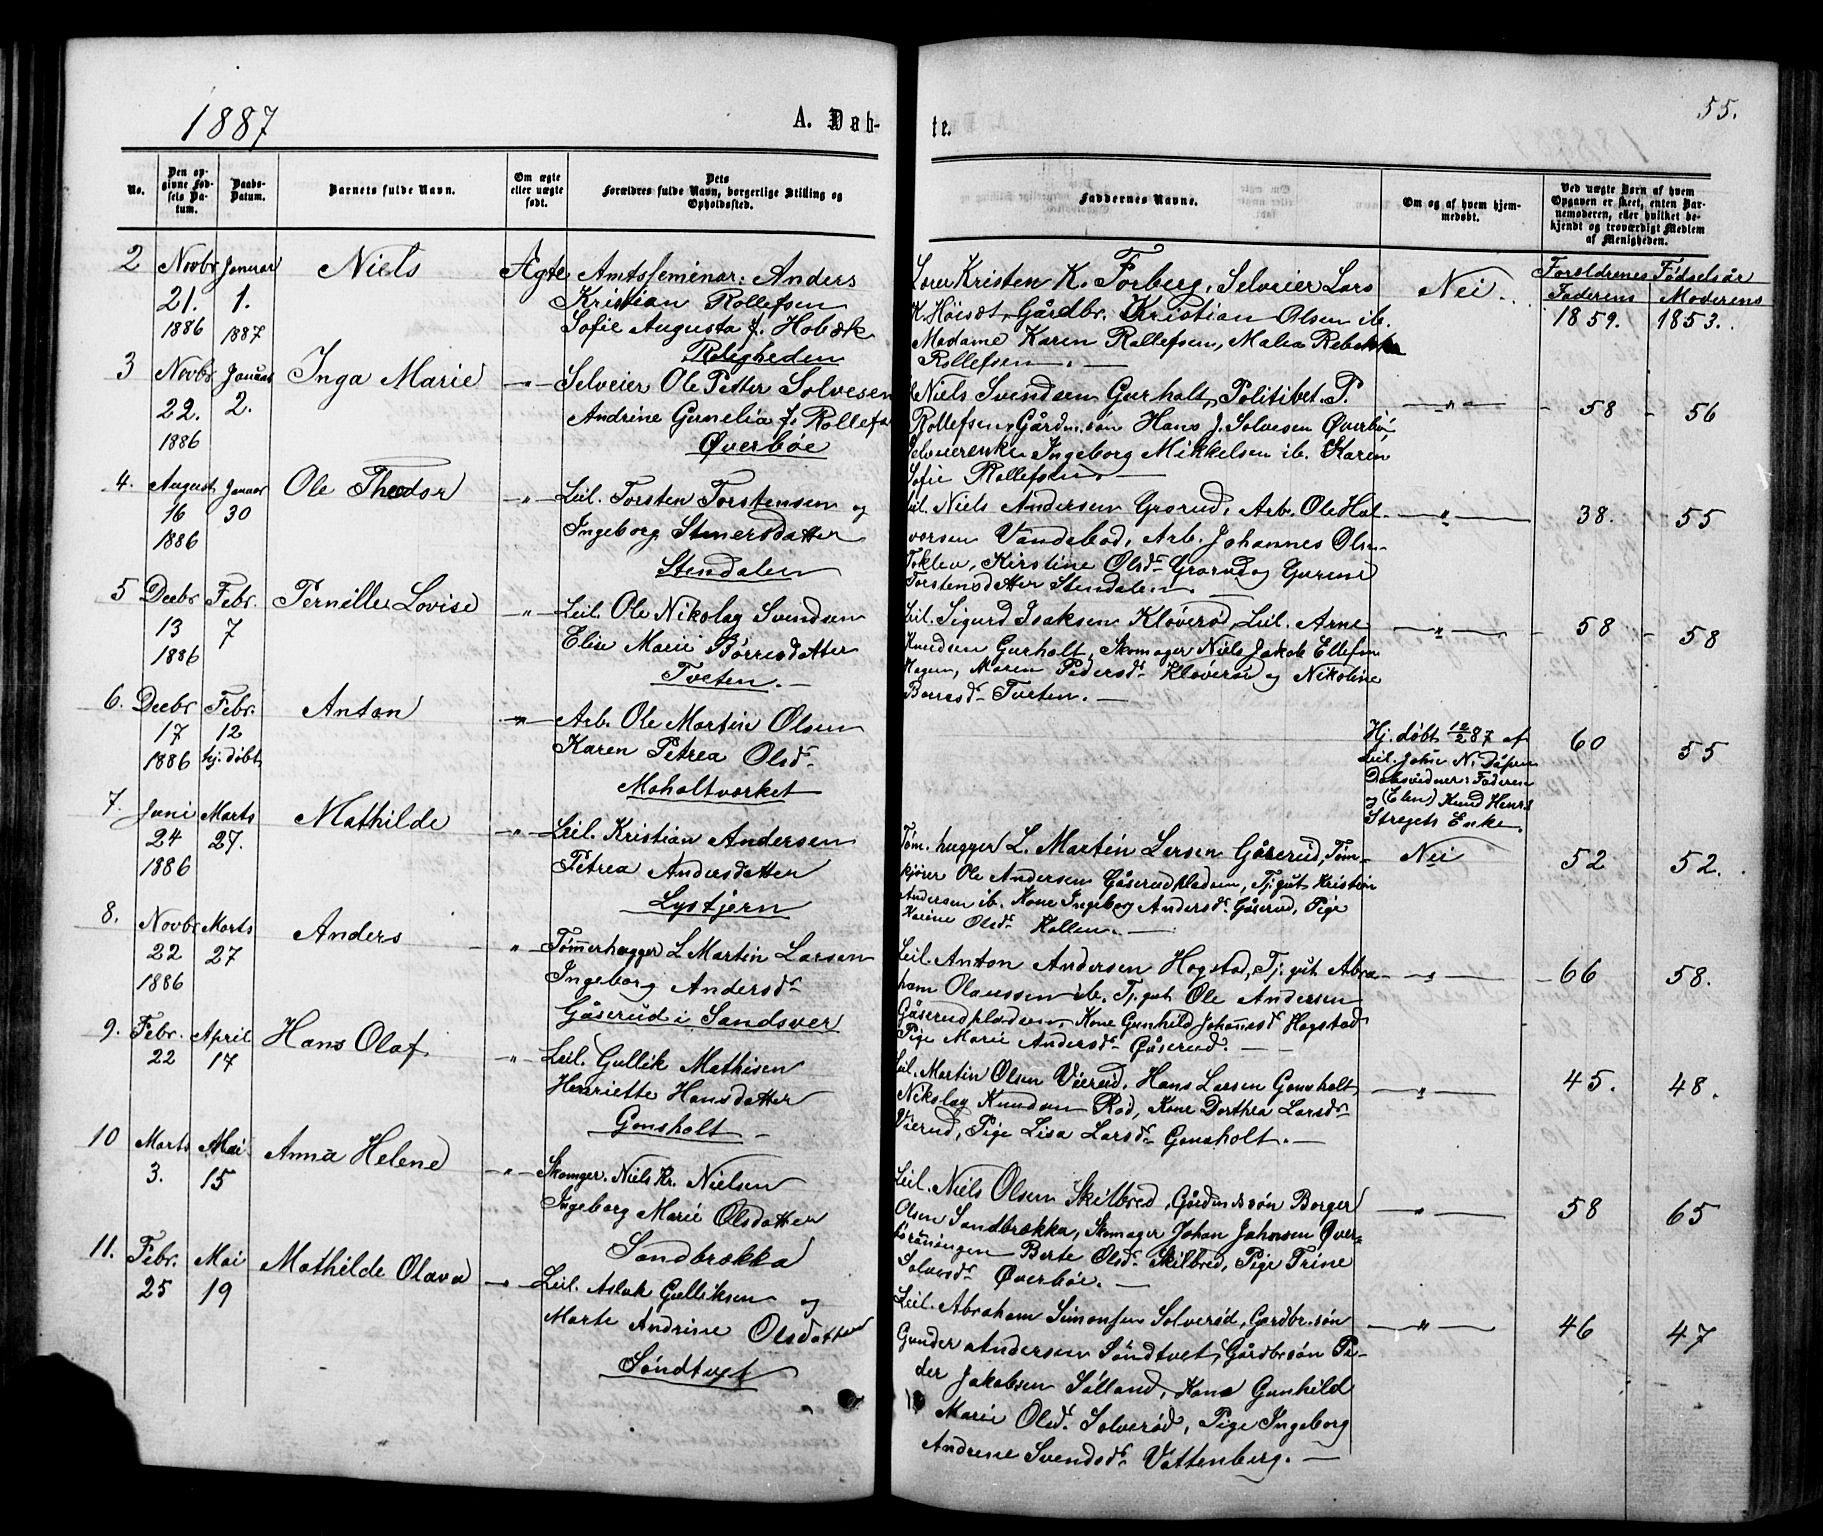 1887
A. Døb-
te.
55.
No.
Den op-
givne Fød-
sels Da-
tum.
Daabs-
Datum.
Barnets fulde Navn.
Om ægte
eller uægte
født.
Dets
Forældres fulde Navn, borgerlige Stilling og
Opholdssted.
Faddernes Navne.
Om og af hvem hjem-
medøbt.
Ved uægte Børn af hvem
Opgaven er skeet, enten Bar-
nemoderen, eller hvilket be-
kjendt og troværdigt Medlem
af Menigheden.
Foroldrenes Fødselsår
Faderens Moderens
2 Novbr 21. 1886 Januar 1. 1887
Niels
Ægte
Amtsseminar: Anders
Kristian Rollefsen
Sofie Augusta f. Hobæk
Roligheden
Lærer Kristen K. Forberg, Selveier Lars
K. Høisæt, Gårdbr. Kristian Olsen ib.
Madame Karen Rollefsen, Malea Rebekka
Rollefsen. —
Nei
1859. 1853.
3 Novbr 22. 1886 Januar 2.
Inga Marie
— " —
Selveier Ole Petter Solvesen
Andrine Gurnelia f. Rollefs
Øverbøe
Niels Svendsen Gurholt, Politibet. P.
Rollefsen, Gårdm.søn Hans J. Solvesen Øverbø,
Selveierenke Ingeborg Mikkelsen ib. Karen
Sofie Rollefsen. —
— " —
58 56
4. August 16 1886 Januar 30
Ole Theodor
— " —
Leil. Torsten Torstensen og
Ingeborg Stenersdatter
Stendalen
Leil. Niels Andersen Grorud, Arb. Ole Hal-
vorsen Vandebod, Arb. Johannes Olsen
Toklev, Kirstine Olsdr Grorud og Gurine
Torstensdatter Stendalen. —
— " —
38. 55
5 Decbr 13 1886 Febr. 7
Pernille Lovise
"
Leil. Ole Nikolay Svendsen
Elise Marie Børresdatter
Tveten. —
Leil. Sigurd Isaksen Kløverød, Leil. Arne
Knudsen Gurholt, Skomager Niels Jakob Ellefsen
Hagen, Maren Pedersdr Kløverød og Nikoline
Borresdr Tveten. —
— " —
58 58
6. Decbr 17 1886 Febr. 12 hj. døbt
Anton
— " —
Arb. Ole Martin Olsen
Karen Petrea Olsdr
Moholtværket
Hj. døbt 12/2 87 af
Leil. John N.
Dåbsvidner: Faderen
og (Elen) Knud Henrs
Enke.
60 55
7. Juni 24 1886 Marts 27.
Mathilde
— " —
Leil. Kristian Andersen
Petrea Andersdatter
Lystjern
Tøm. hugger L. Martin Larsen Gåserud, Tøm-
kjører Ole Andersen Gåserudpladsen, Tj.gut Kristian
Andersen ib. Kone Ingeborg Andersdr Gåserud, Pige
Karine Olsdr Kollen. —
Nei
52 52.
8. Novbr 22 1886 Marts 27
Anders
— "
Tømmerhugger L Martin Larsen
Ingeborg Andersdr
Gåserud i Sandsver
Leil. Anton Andersen Hogstad, Tj. gut Abra-
ham Olaussen ib. Tj. gut Ole Andersen
Gåserudpladsen, Kone Gunhild Johannesd Hogstad
Pige Marie Andersdr Gåserud. —
— " —
66 58.
9. Febr. 22 April 17
Hans Olaf
— " —
Leil. Gullik Mathisen
Henriette Hansdatter
Gonsholt —
Leil. Martin Olsen Vierud, Hans Larsen Gonsholt,
Nikolay Knudsen Rød, Kone Dorthea Larsdr
Vierud, Pige Lisa Larsdr Gonsholt. —
— " —
45. 48.
10 Marts 3. Mai 15
Anna Helene
— " —
Skomger. Niels Kr. Nielsen
Ingeborg Marie Olsdatter
Sandbrækka
Leil. Niels Olsen Skilbred, Gårdmdssøn Borger
Olsen Sandbrækka, Skomager Johan Johnsen Øver-
Berte Olsdr Skilbred, Pige Trine
Solvesdr Øverbøe. —
— " —
58 65
11. Febr. 25 Mai 19
Mathilde Olava
— " —
Leil. Aslak Gulliksen og
Marte Andrine Olsdatter
Søndtvet
Leil. Abraham Simonsen Solverød, Gårdbr.søn
Gunder Andersen Søndtvet, Gårdbr.søn Pe-
der Jakobsen Sølland, Kone Gunhild
Marie Olsdr Solverød, Pige Ingeborg
Andrene Svendsdr Vattenberg. —
— " —
46 47